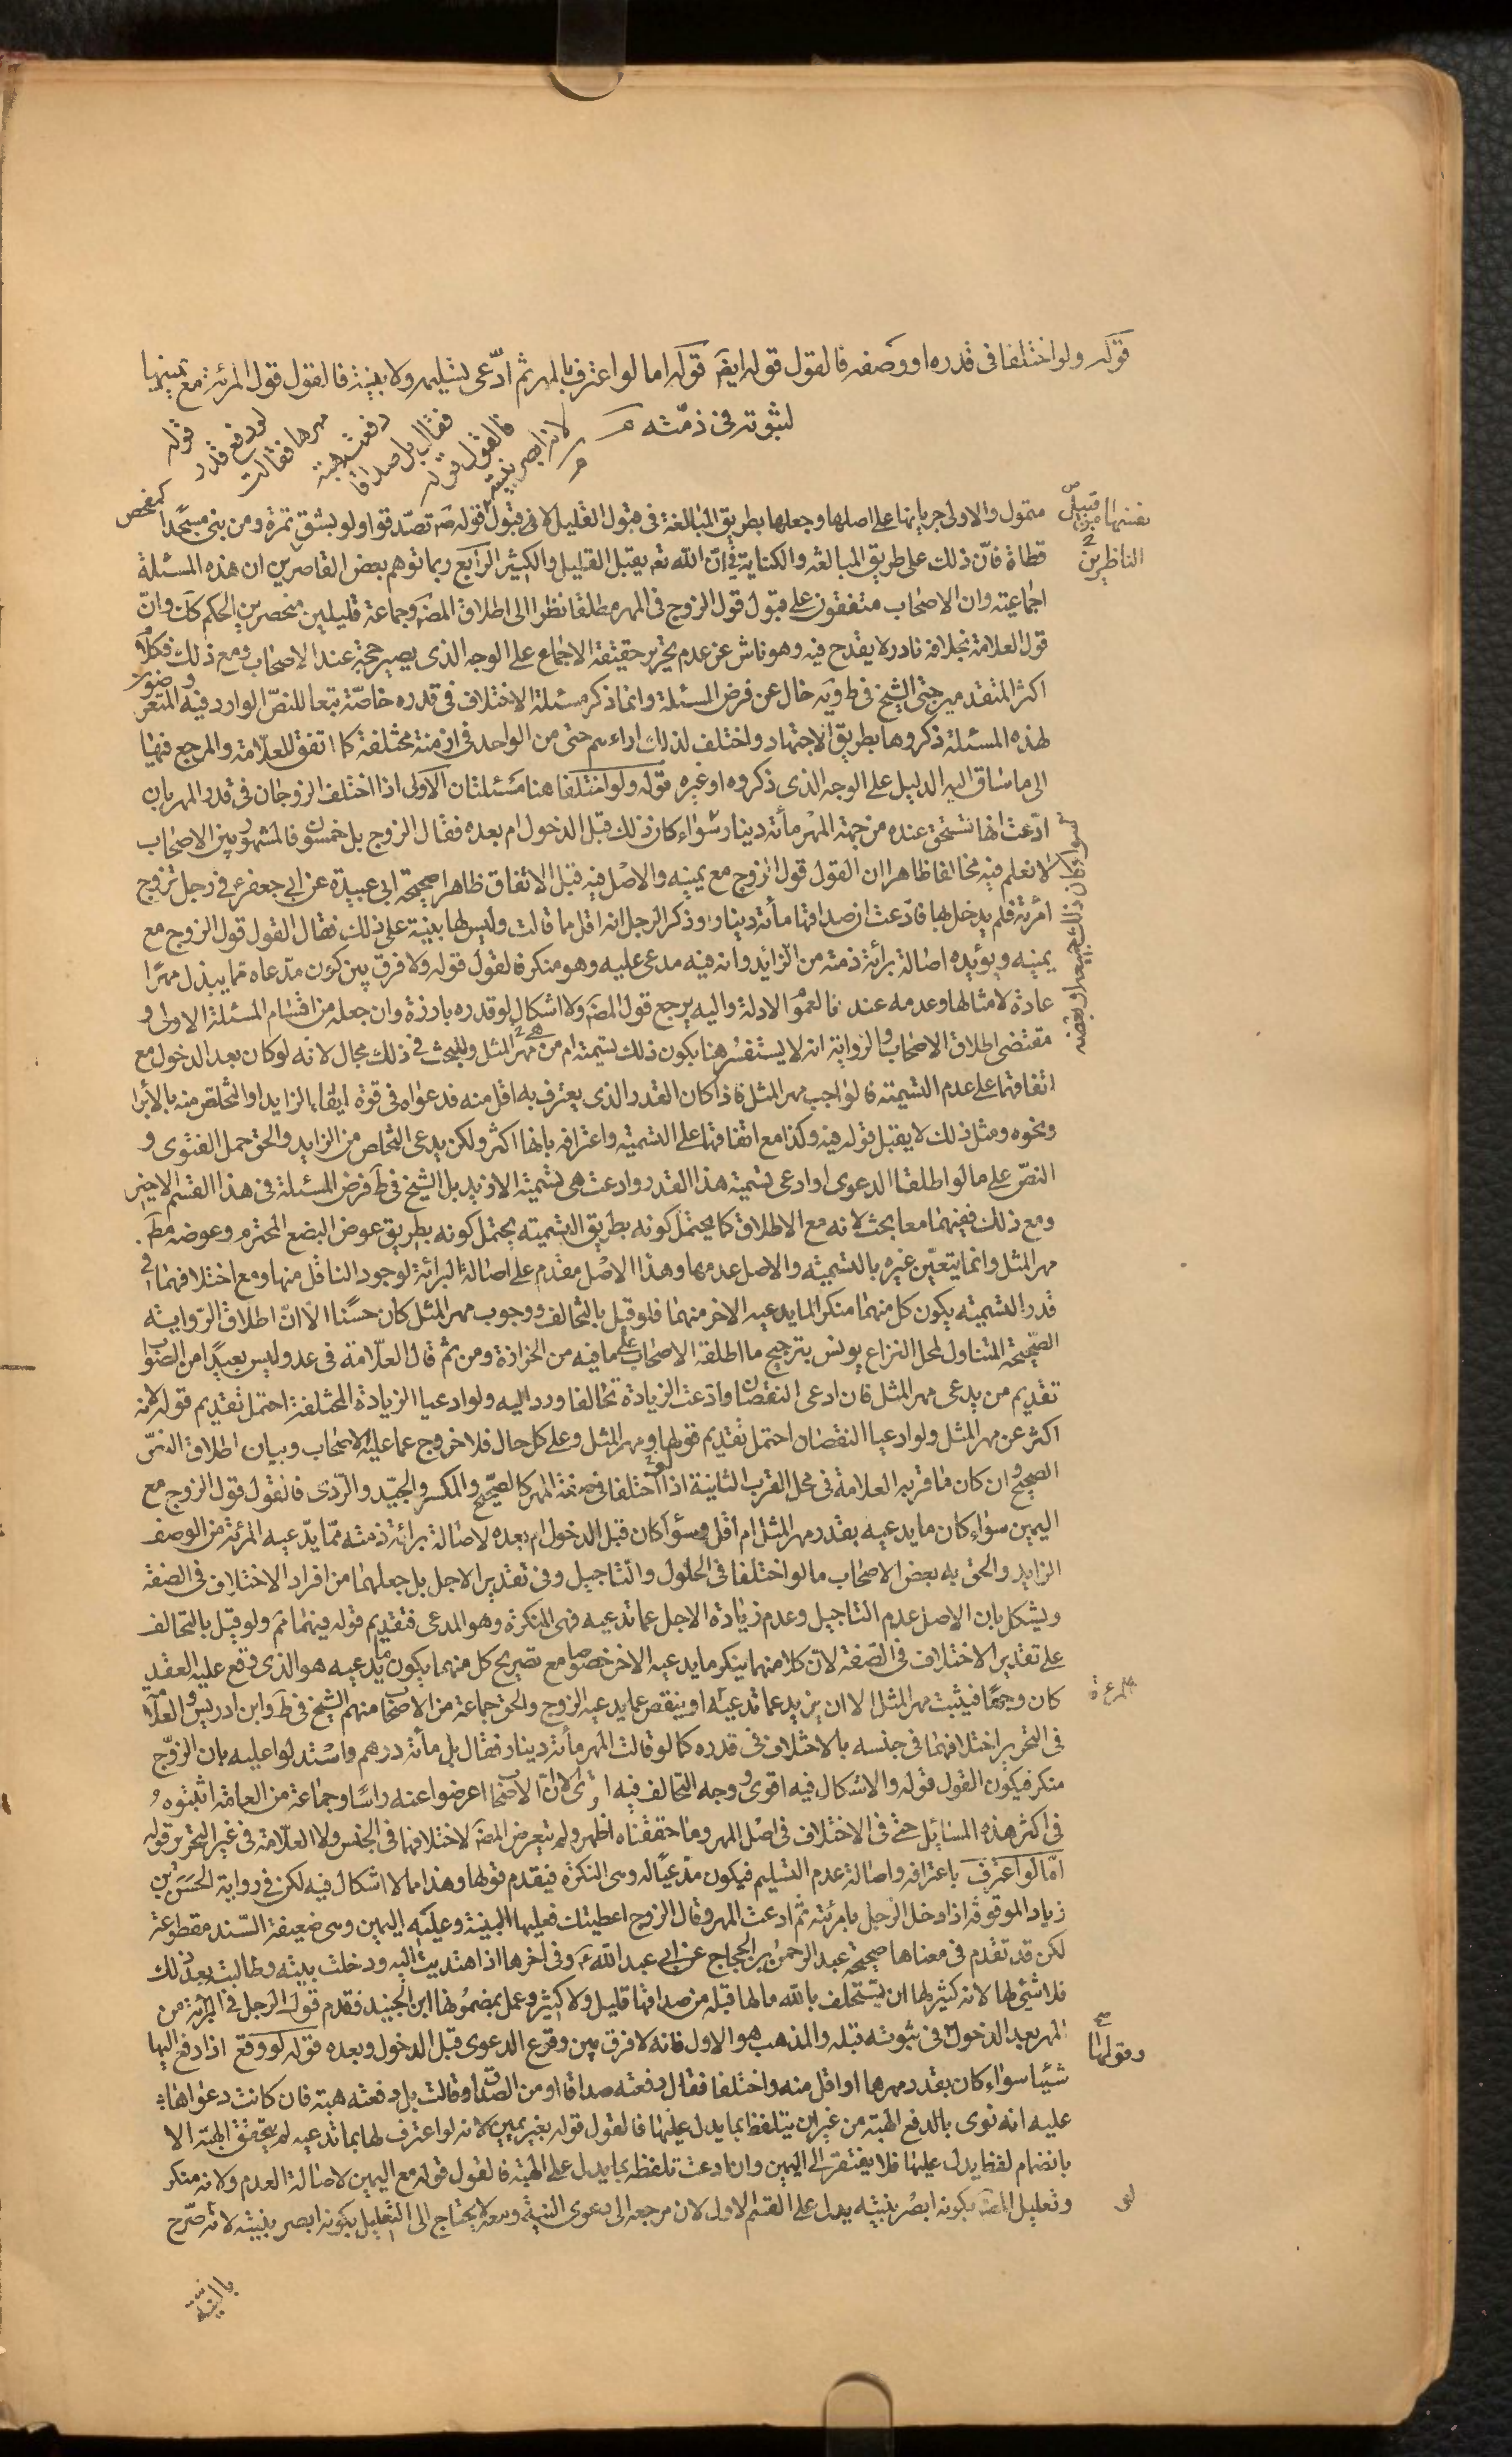 قوله ولو اختلفا فى قدره او وصفه فالقول قوله ايضَ قوله اما لو اعترف بالمهر ثم ادّعى تسليمه ولا بينة فالقول قول المرئة مع يمينها
لثبوته فى ذمّته
قوله لو دفع قدر مهرها فقالت دفعته هبة فقال بل صداقا فالقول قوله لانه ابصر بنيته
متمول والاولى جريانها على اصلها وجعلها بطريق المبالغة فى قبول القليل لا فى قبول قوله صَ تصدّقوا ولو بشق تمرة ومن بنى مسجدًا كمفحص
قطاة فانّ ذلك على طريق المبالغة والكناية فى انّ الله تعَ يقبل القليل والكثير الرابع ربما توهم بعض القاصرين ان هذه المسئلة
اجماعيته وان الاصحاب متفقون على قبول قول الزوج فى المهر مطلقا نظرا الى اطلاق المصَ وجماعة قليلين منحصرين الحكم كَك وانّ
قول العلامة بخلافه نادر لا يقدح فيه وهو ناش عن عدم تحرير حقيقة الاجماع على الوجه الذى يصير حجة عند الاصحاب ومع ذلك فكلام
اكثر المتقدمين حتى الشيخ فى ط ويه خال عن فرض المسئلة وانما ذكر مسئلة الاختلاف فى قدره خاصّة تبعا للنصّ الوارد فيه والمتعرضون
لهذه المسئلة ذكروها بطريق الاجتهاد واختلف لذلك اراءهم حتى من الواحد فى ازمنة مختلفة كما اتفق للعلّامة والمرجع فيها
الى ما ساق اليه الدليل على الوجه الذى ذكروه او غيره قوله ولو اختلفا هنا مسئلتان الاولى اذا اختلف الزوجان فى قدر المهر بان
ادّعت انها تستحق عنده من جهة المهر مأتة دينار سواء كان ذلك قبل الدخول ام بعده فقال الزوج بل خمسون فالمشهور بين الاصحاب
لا نعلم فيه مخالفا ظاهرا ان القول قول الزوج مع يمينه والاصل فيه قبل الاتفاق ظاهرا صحيحة ابى عبيدة عن ابى جعفرعَ فى رجل تزوج
امرئة فلم يدخل بها فادّعت ان صداقها مأتة دينار وذكر الرجل انه اقل ما قالت وليس لها بينة على ذلك فقال القول قول الزوج مع
يمينه ويؤيده اصالة برائة ذمته من الزايد وانه فيه مدعى عليه وهو منكر فالقول قوله ولا فرق بين كون مدّعاه مما يبذل مهرًا
عادة لامثالها وعدمه عندنا لعموم الادلة واليه يرجع قول المصَ ولا اشكال لو قدره بارزة وان جعله من اقسام المسئلة الاولى و
مقتضى اطلاق الاصحاب والرواية انه لا يستفسر هنا بكون ذلك بتسميته ام من مهر المثل وللبحث فى ذلك مجال لانه لو كان بعد الدخول مع
اتفاقهما على عدم التسميته فالواجب مهر المثل فاذا كان القدر الذى يعترف به اقل منه فدعواه فى قوة ايفاء الزايد او التخلص منه بالابرا
ونحوه ومثل ذلك لا يقبل قوله فيه وكذا مع اتفاقهما على التسميته واعترافه بانها اكثر ولكن يدعى التخلص من الزايد والحق حمل الفتوى و
النصّ على ما لو اطلقا الدعوى او ادعى تسميته هذا القدر وادعت هى تسميته الازيد بل الشيخ فى ط فرض المسئلة فى هذا القسم الاخير
ومع ذلك ففيهما معا بحث لانه مع الاطلاق كما يحتمل كونه بطريق التسميته يحتمل كونه بطريق عوض البضع المحترم وعوضه مطَ
مهر المثل وانما يتعيّن غيره بالتسميته والاصل عدمها وهذا الاصل مقدم على اصالة البرائة لوجود الناقل منها ومع اختلافهما فى
قدر التسميته يكون كل منهما منكرا لما يدعيه الاخر منهما فلو قيل بالتحالف ووجوب مهر المثل كان حسنًا الا انّ اطلاق الرّواية
الصّحيحة المتناول لمحل النزاع يونس بترجيح ما اطلقه الاصحاب على ما فيه من الحزازة ومن ثم قال العلّامة فى عد وليس ببعيدًا من الصّواب
تقديم من يدعى مهر المثل فان ادعى النقصان وادّعت الزيادة تحالفا ورد اليه ولو ادعيا الزيادة المختلفة احتمل تقديم قوله لانه
اكثر عن مهر المثل ولو ادعيا النقصان احتمل تقديم قولها ومهر المثل وعلى كل حال فلا خروج عما عليه الاصحاب وبيان اطلاق النصّ
الصحيح وان كان ما قربه العلامة فى محل القرب الثانية اذا اختلفا فى صفة المهر كالصحيح والمكسر والجيّد والرّدى فالقول قول الزوج مع
اليمين سواء كان ما يدعيه بقدر مهر المثل ام اقل وسواء كان قبل الدخول ام بعده لاصالة برائة ذمته ممّا يدّعيه المرئة من الوصف
الزايد والحق به بعض الاصحاب ما لو اختلفا فى الحلول والتاجيل وفى تقدير الاجل بل جعلهما من افراد الاختلاف فى الصفة
ويشكل بان الاصل عدم التاجيل وعدم زيادة الاجل عما تدعيه فهى المنكرة وهو المدعى فتقديم قوله فيهما ثم ولو قيل بالتحالف
على تقدير الاختلاف فى الصّفة لانّ كلا منهما ينكر ما يدعيه الاخر خصوصا مع تصريح كل منهما بكون ما يدعيه هو الذى وقع عليه العقد
كان وجهًا فيثبت مهر المثل الا ان يزيد عما تدعيه او ينقص عما يدعيه الزوج والحق جماعة من الاصحاب منهم الشيخ فى ط وابن ادريس والعلامة
فى التحرير اختلافهما فى جنسه بالاختلاف فى قدره كما لو قالت المهر مأتة دينار فقال بل مأتة درهم واستدلوا عليه بان الزوّج
منكر فيكون القول قوله والاشكال فيه اقوى ووجه التحالف فيه الا انّ الاصحاب اعرضوا عنه راسًا وجماعة من العامّة اثبتوه و
فى اكثر هذه المسائل حتى فى الاختلاف فى اصل المهر وما حققناه اظهر ولم يتعرض المصَ لاختلافهما فى الجنس ولا العلّامة فى غير التحرير قوله
امّا لو اعترف باعترافه واصالة عدم التسليم فيكون مدّعيًا له وهى المنكرة فيقدم قولها وهذا مما لا اشكال فيه لكن فى رواية الحسن بن
زياد الموقوفة اذا دخل الرجل بامرئته ثم ادعت المهر وقال الزوج اعطيتك فعليها البينة وعليه اليمين وهى ضعيفة السّند مقطوعة
لكن قد تقدم فى معناها صحيحة عبد الرحمن بن الحجاج عن ابى عبد اللهعَ وفى اخرها اذا اهتديت اليه ودخلت بيته وطالبت بعد ذلك
فلا شئى لها لانه كثير لها ان تستحلف بالله ما لها قبله من صداقها قليل ولا كثير وعمل بمضمونها ابن الجنيد فقدم قول الرجل فى البرائة من
المهر بعد الدخول فى ثبوته قبله والمذهب هو الاول فانه لا فرق بين وقوع الدعوى قبل الدخول وبعده قوله لو وقع اذا دفع اليها
شيئا سواء كان بقدر مهرها او اقل منه واختلفا فقال دفعته صداقا او من الصّداق وقالت بل دفعته هبة فان كانت دعواها
عليه انه نوى بالدفع الهبة من غير ان يتلفظ بما يدل عليها فالقول قوله بغير يمين لانه لو اعترف لها بما تدعيه لم يتحقق الهبة الا
بانضمام لفظ يدل عليها فلا يفتقر الى اليمين وان ادعت تلفظه بما يدل على الهبة فالقول قوله مع اليمين لاصالة العدم ولانه منكر
وتعليل المصَ بكونه ابصر بنيته يدل على القسم الاول لان مرجعه الى دعوى النية ومعه لا يحتاج الى التعليل بكونه ابصر بنيته لانه صرّح
الناظرين
سواء كان ذلك جميعه او بعضه
وقولها
بالنيّة